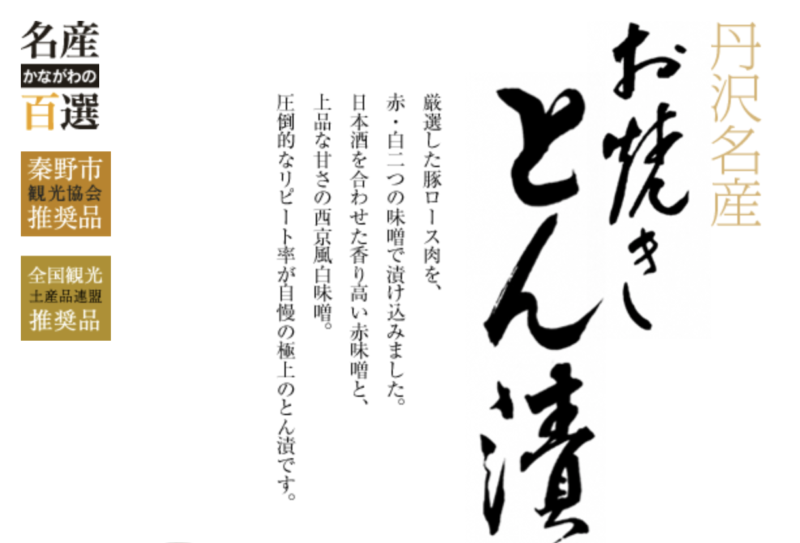 丹沢名産
お焼き
とん漬
厳選した豚ロース肉を、
赤・白二つの味噌で漬け込みました。
日本酒を合わせた香り高い赤味噌と、
上品な甘さの西京風白味噌。
圧倒的なリピート率が自慢の極上のとん漬です。
名産
かながわの
百選
秦野市
観光協会
推奨品
全国観光
土産品連盟
推奨品